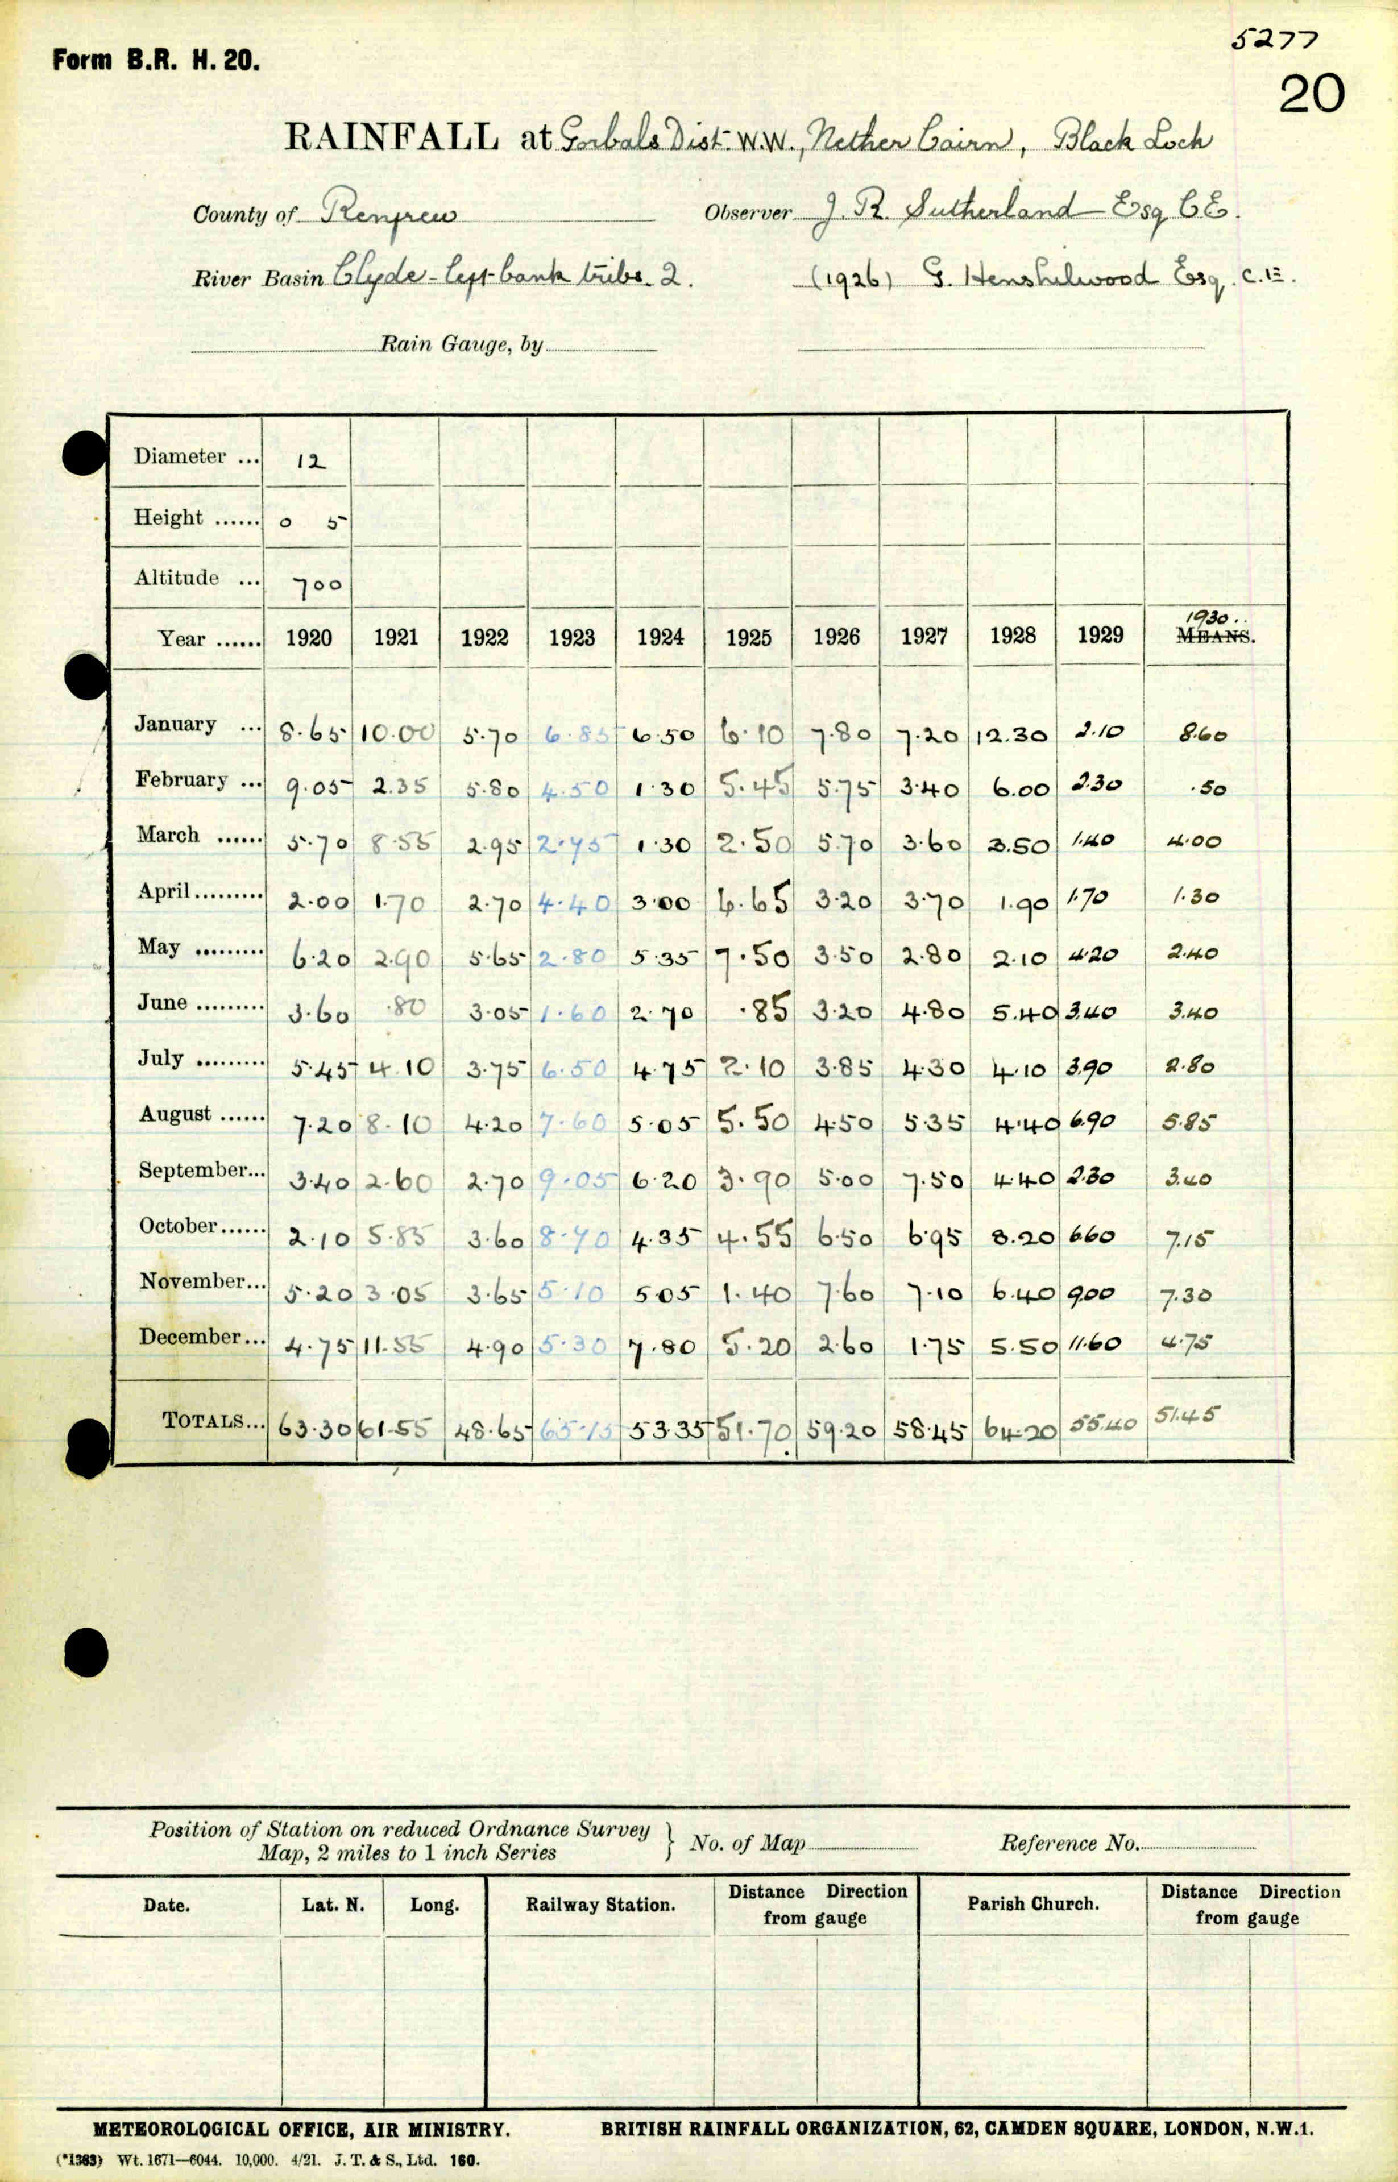 5277
Form B.R. H. 20.
20
RAINFALL at Gorbals Dist. W.W., Nether Cairn, Black Loch
County of Renfrew Observer J. R. Sutherland Esq C.E.
River Basin Clyde - left bank tribs. 2. (1926) G. Henshilwood Esq. C.E.
Rain Gauge, by
Diameter ... 12
Height ...... 0 5
Altitude ... 700
1930..
Year ...... 1920 1921 1922 1923 1924 1925 1926 1927 1928 1929 MEANS.
January ... 8.65 10.00 5.70 6.85 6.50 6.10 7.80 7.20 12.30 2.10 8.60
February ... 9.05 2.35 5.80 4.50 1.30 5.45 5.75 3.40 6.00 2.30 .50
March ...... 5.70 8.55 2.95 2.75 1.30 2.50 5.70 3.60 3.50 1.40 4.00
April ......... 2.00 1.70 2.70 4.40 3.00 6.65 3.20 3.70 1.90 1.70 1.30
May ......... 6.20 2.90 5.65 2.80 5.35 7.50 3.50 2.80 2.10 4.20 2.40
June ......... 3.60 .80 3.05 1.60 2.70 .85 3.20 4.80 5.40 3.40 3.40
July ......... 5.45 4.10 3.75 6.50 4.75 2.10 3.85 4.30 4.10 3.90 2.80
August ...... 7.20 8.10 4.20 7.60 5.05 5.50 4.50 5.35 4.40 6.90 5.85
September... 3.40 2.60 2.70 9.05 6.20 3.90 5.00 7.50 4.40 2.30 3.40
October...... 2.10 5.85 3.60 8.70 4.35 4.55 6.50 6.95 8.20 6.60 7.15
November... 5.20 3.05 3.65 5.10 5.05 1.40 7.60 7.10 6.40 9.00 7.30
December... 4.75 11.55 4.90 5.30 7.80 5.20 2.60 1.75 5.50 11.60 4.75
TOTALS... 63.30 61.55 48.65 65.15 53.35 51.70 59.20 58.45 64.20 55.40 51.45
Position of Station on reduced Ordnance Survey
Map, 2 miles to 1 inch Series } No. of Map Reference No.
Date. Lat. N. Long. Railway Station. Distance Direction from gauge Parish Church. Distance Direction from gauge
METEOROLOGICAL OFFICE, AIR MINISTRY. BRITISH RAINFALL ORGANIZATION, 62, CAMDEN SQUARE, LONDON, N.W.1.
(*1383) Wt. 1671—6044. 10,000. 4/21. J. T. & S., Ltd. 160.